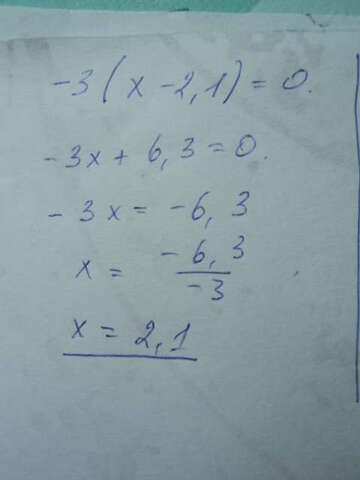 -3(x-2,1)=0.
-3x+6,3=0.
-3x=-6,3
x=\frac{-6,3}{-3}
x=2,1